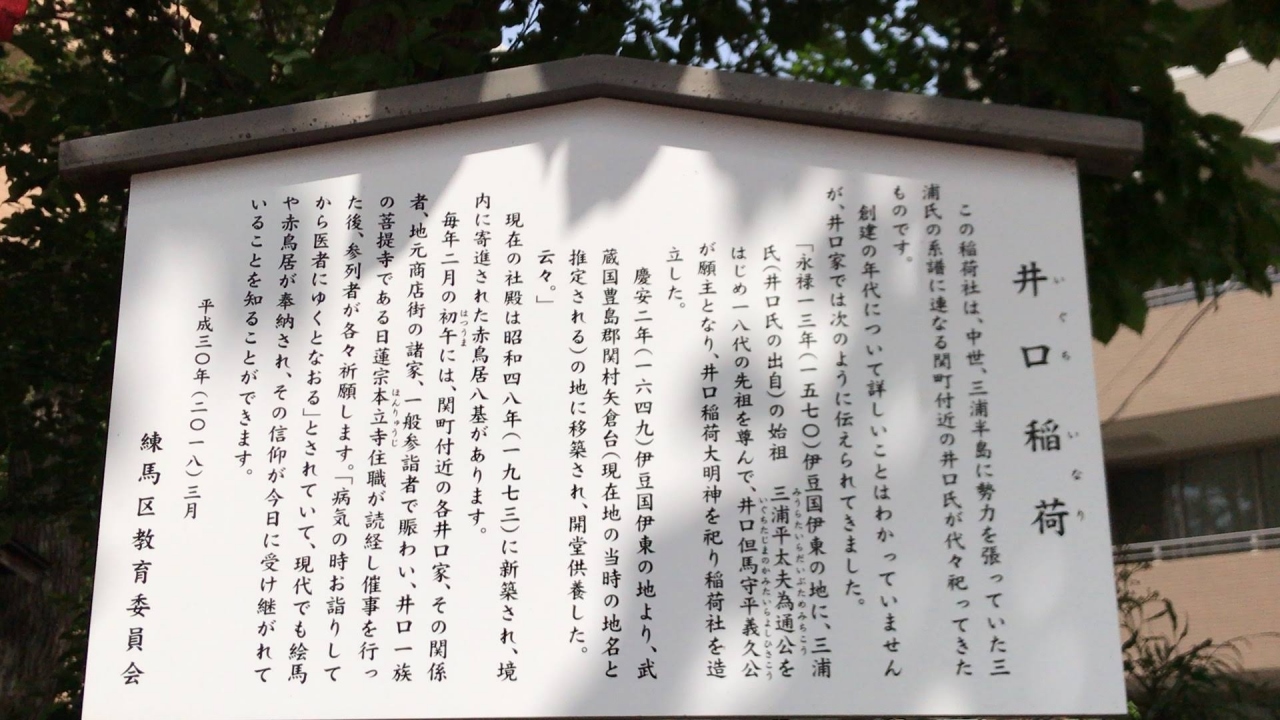 井口稲荷
いぐちいなり
この稲荷社は、中世、三浦半島に勢力を張っていた三
浦氏の系譜に連なる関町付近の井口氏が代々祀ってきた
ものです。
創建の年代について詳しいことはわかっていません
が、井口家では次のように伝えられてきました。
「永禄一三年(一五七〇)伊豆国伊東の地に、三浦
氏(井口氏の出自)の始祖 三浦平太夫為通公を
みうらたいらだいぶためみちこう
はじめ一八代の先祖を尊んで、井口但馬守平義久公
いぐちたじまのかみたいらよしひさこう
が願主となり、井口稲荷大明神を祀り稲荷社を造
立した。
慶安二年(一六四九)伊豆国伊東の地より、武
蔵国豊島郡関村矢倉台(現在地の当時の地名と
推定される)の地に移築され、開堂供養した。
云々。」
現在の社殿は昭和四八年(一九七三)に新築され、境
内に寄進された赤鳥居八基があります。
毎年二月の初午には、関町付近の各井口家、その関係
はつうま
者、地元商店街の諸家、一般参詣者で賑わい、井口一族
の菩提寺である日蓮宗本立寺住職が読経し催事を行っ
ほんりゅうじ
た後、参列者が各々祈願します。「病気の時お詣りして
から医者にゆくとなおる」とされていて、現代でも絵馬
や赤鳥居が奉納され、その信仰が今日に受け継がれて
いることを知ることができます。
平成三〇年(二〇一八)三月
練馬区教育委員会